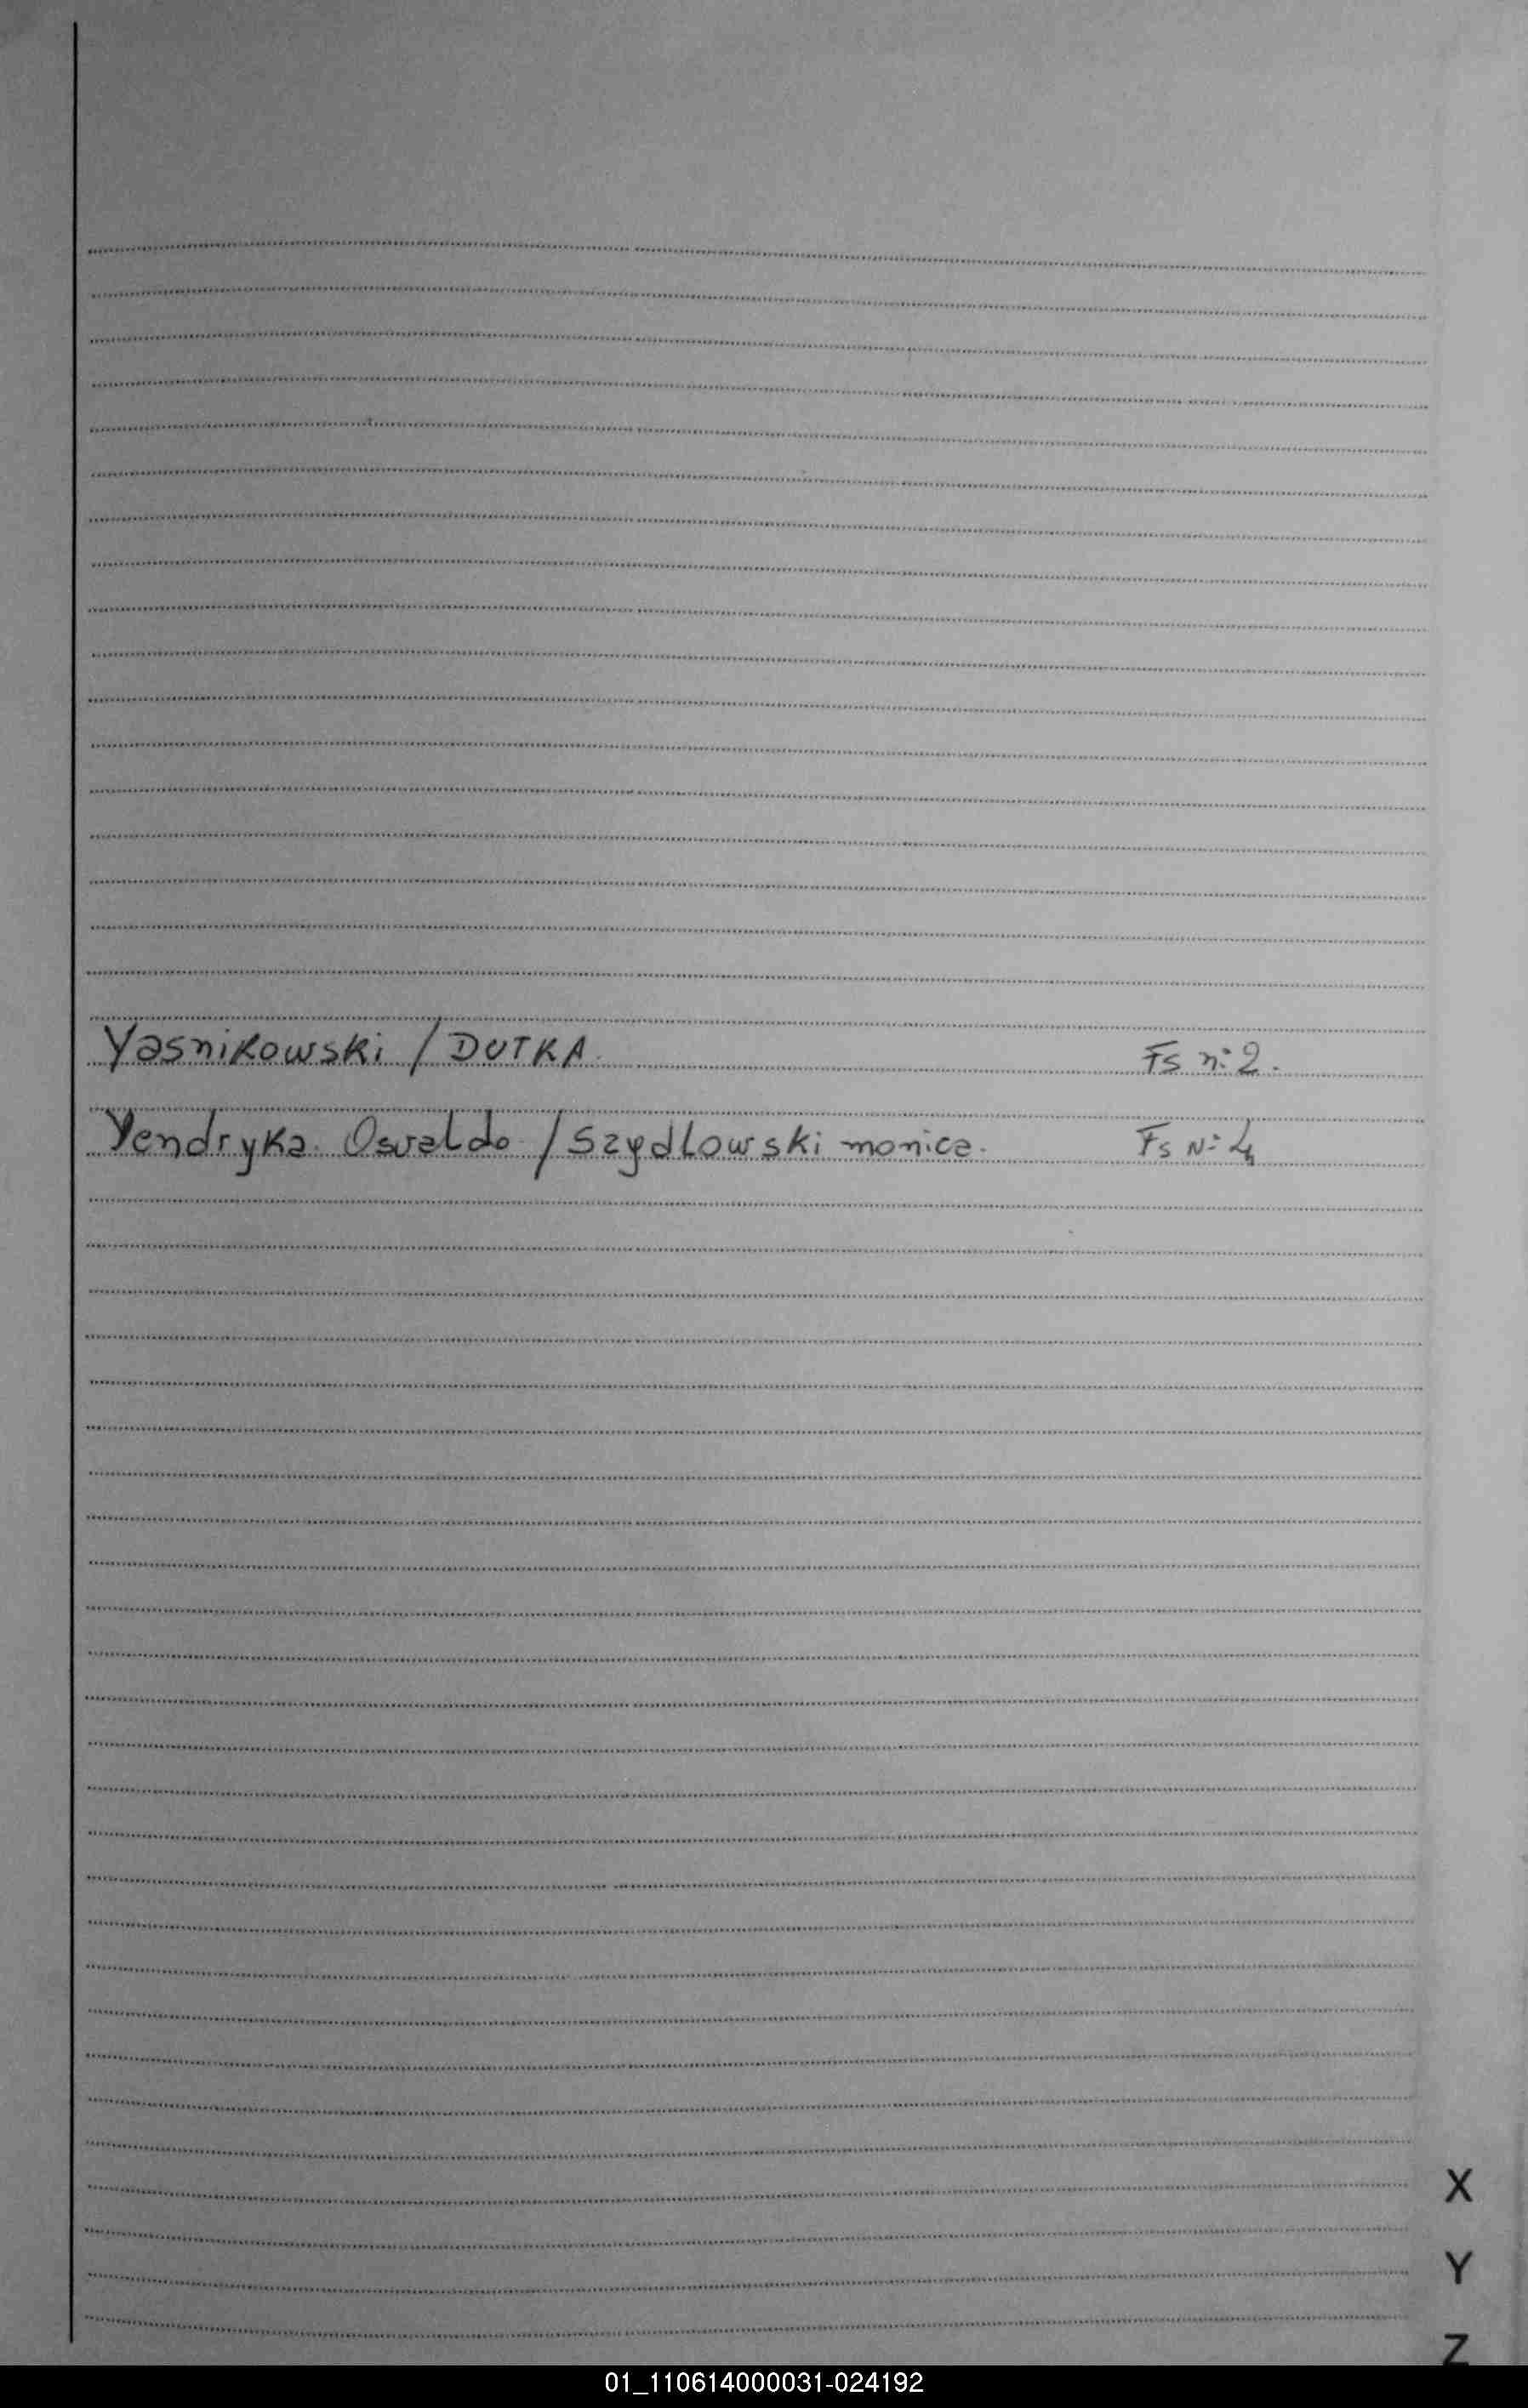 Yasnikowski / DUTKA. Fs n:2.
Yendryka Osvaldo / Szydlowski monica. Fs N:4
X
Y
Z
01_110614000031-024192